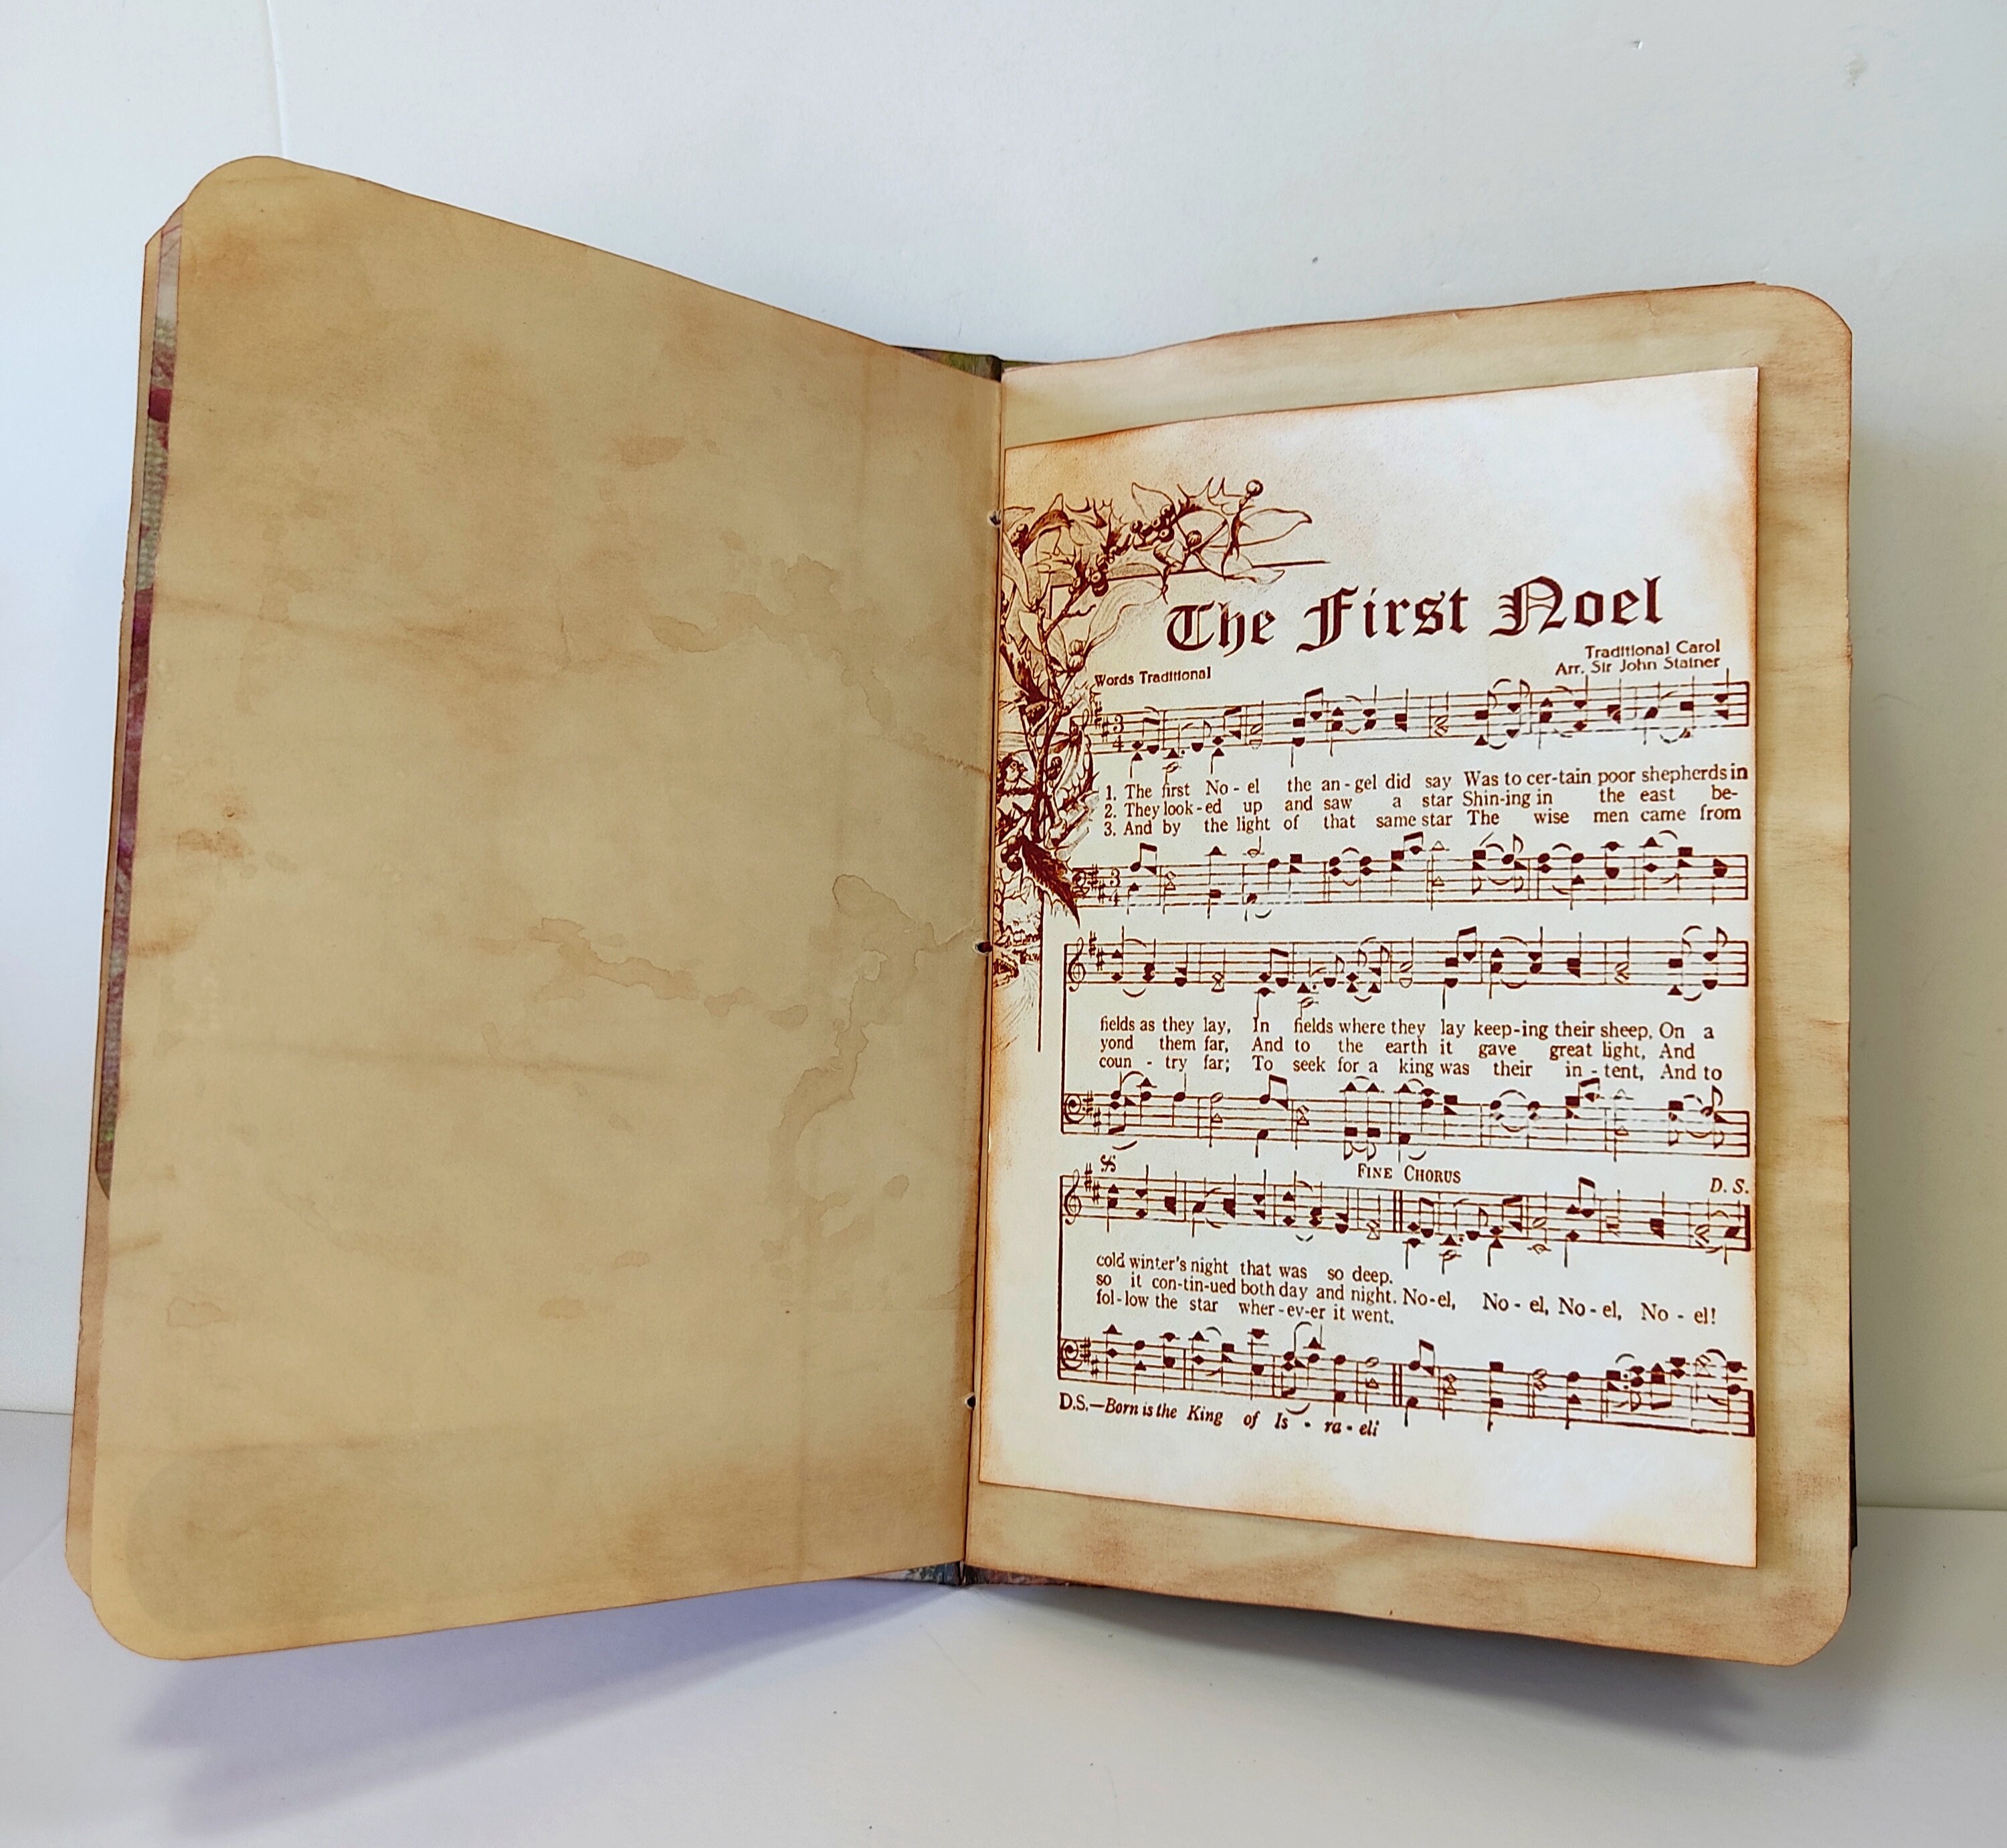 The First Noel
Traditional Carol
Words Traditional
Arr. Sir John Stainer
3
4
1. The first No - el the an - gel did say Was to cer-tain poor shepherds in
2. They look - ed up and saw a star Shin-ing in the east be-
3. And by the light of that same star The wise men came from
3
4
fields as they lay, In fields where they lay keep-ing their sheep, On a
yond them far, And to the earth it gave great light, And
coun - try far; To seek for a king was their in - tent, And to
FINE CHORUS
D. S.
cold winter's night that was so deep.
so it con-tin-ued both day and night. No-el, No - el, No - el, No - el!
fol-low the star wher-ev-er it went.
D.S.—Born is the King of Is - ra - eli